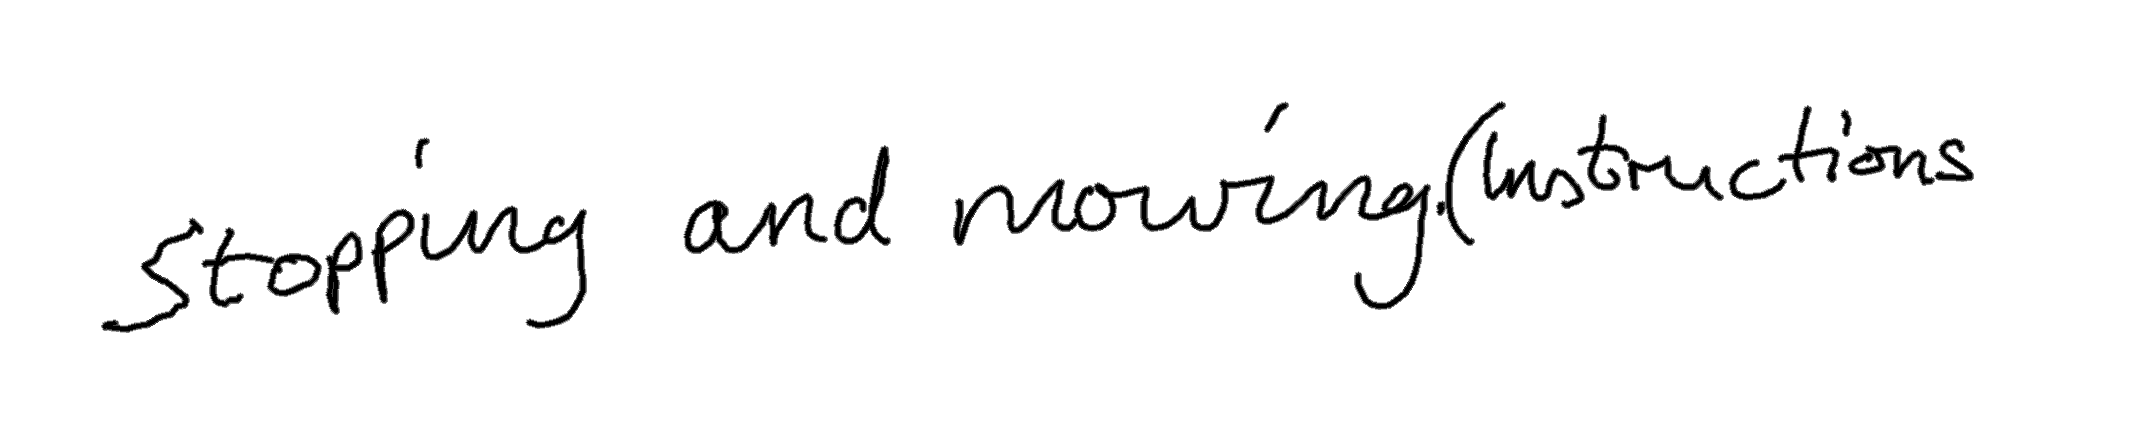 Stopping and mowing. (Instructions